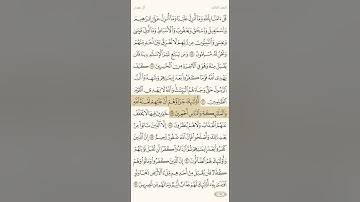 الجزء الثالث
آل عمران
قُلْ ءَامَنَّا بِٱللَّهِ وَمَآ أُنزِلَ عَلَيْنَا وَمَآ أُنزِلَ عَلَىٰٓ إِبْرَٰهِيمَ
وَإِسْمَٰعِيلَ وَإِسْحَٰقَ وَيَعْقُوبَ وَٱلْأَسْبَاطِ وَمَآ أُوتِىَ مُوسَىٰ
وَعِيسَىٰ وَٱلنَّبِيُّونَ مِن رَّبِّهِمْ لَا نُفَرِّقُ بَيْنَ أَحَدٍ مِّنْهُمْ
وَنَحْنُ لَهُۥ مُسْلِمُونَ ٨٤ وَمَن يَبْتَغِ غَيْرَ ٱلْإِسْلَٰمِ دِينًا فَلَن
يُقْبَلَ مِنْهُ وَهُوَ فِى ٱلْءَاخِرَةِ مِنَ ٱلْخَٰسِرِينَ ٨٥ كَيْفَ
يَهْدِى ٱللَّهُ قَوْمًا كَفَرُوا۟ بَعْدَ إِيمَٰنِهِمْ وَشَهِدُوٓا۟ أَنَّ
ٱلرَّسُولَ حَقٌّ وَجَآءَهُمُ ٱلْبَيِّنَٰتُ وَٱللَّهُ لَا يَهْدِى ٱلْقَوْمَ
ٱلظَّٰلِمِينَ ٨٦ أُو۟لَٰٓئِكَ جَزَآؤُهُمْ أَنَّ عَلَيْهِمْ لَعْنَةَ ٱللَّهِ
وَٱلْمَلَٰٓئِكَةِ وَٱلنَّاسِ أَجْمَعِينَ ٨٧ خَٰلِدِينَ فِيهَا لَا يُخَفَّفُ
عَنْهُمُ ٱلْعَذَابُ وَلَا هُمْ يُنظَرُونَ ٨٨ إِلَّا ٱلَّذِينَ تَابُوا۟ مِنۢ
بَعْدِ ذَٰلِكَ وَأَصْلَحُوا۟ فَإِنَّ ٱللَّهَ غَفُورٌ رَّحِيمٌ ٨٩ إِنَّ ٱلَّذِينَ
كَفَرُوا۟ بَعْدَ إِيمَٰنِهِمْ ثُمَّ ٱزْدَادُوا۟ كُفْرًا لَّن تُقْبَلَ تَوْبَتُهُمْ
وَأُو۟لَٰٓئِكَ هُمُ ٱلضَّآلُّونَ ٩٠ إِنَّ ٱلَّذِينَ كَفَرُوا۟ وَمَاتُوا۟ وَهُمْ
كُفَّارٌ فَلَن يُقْبَلَ مِنْ أَحَدِهِم مِّلْءُ ٱلْأَرْضِ ذَهَبًا وَلَوِ
ٱفْتَدَىٰ بِهِۦٓ أُو۟لَٰٓئِكَ لَهُمْ عَذَابٌ أَلِيمٌ وَمَا لَهُم مِّن نَّٰصِرِينَ ٩١